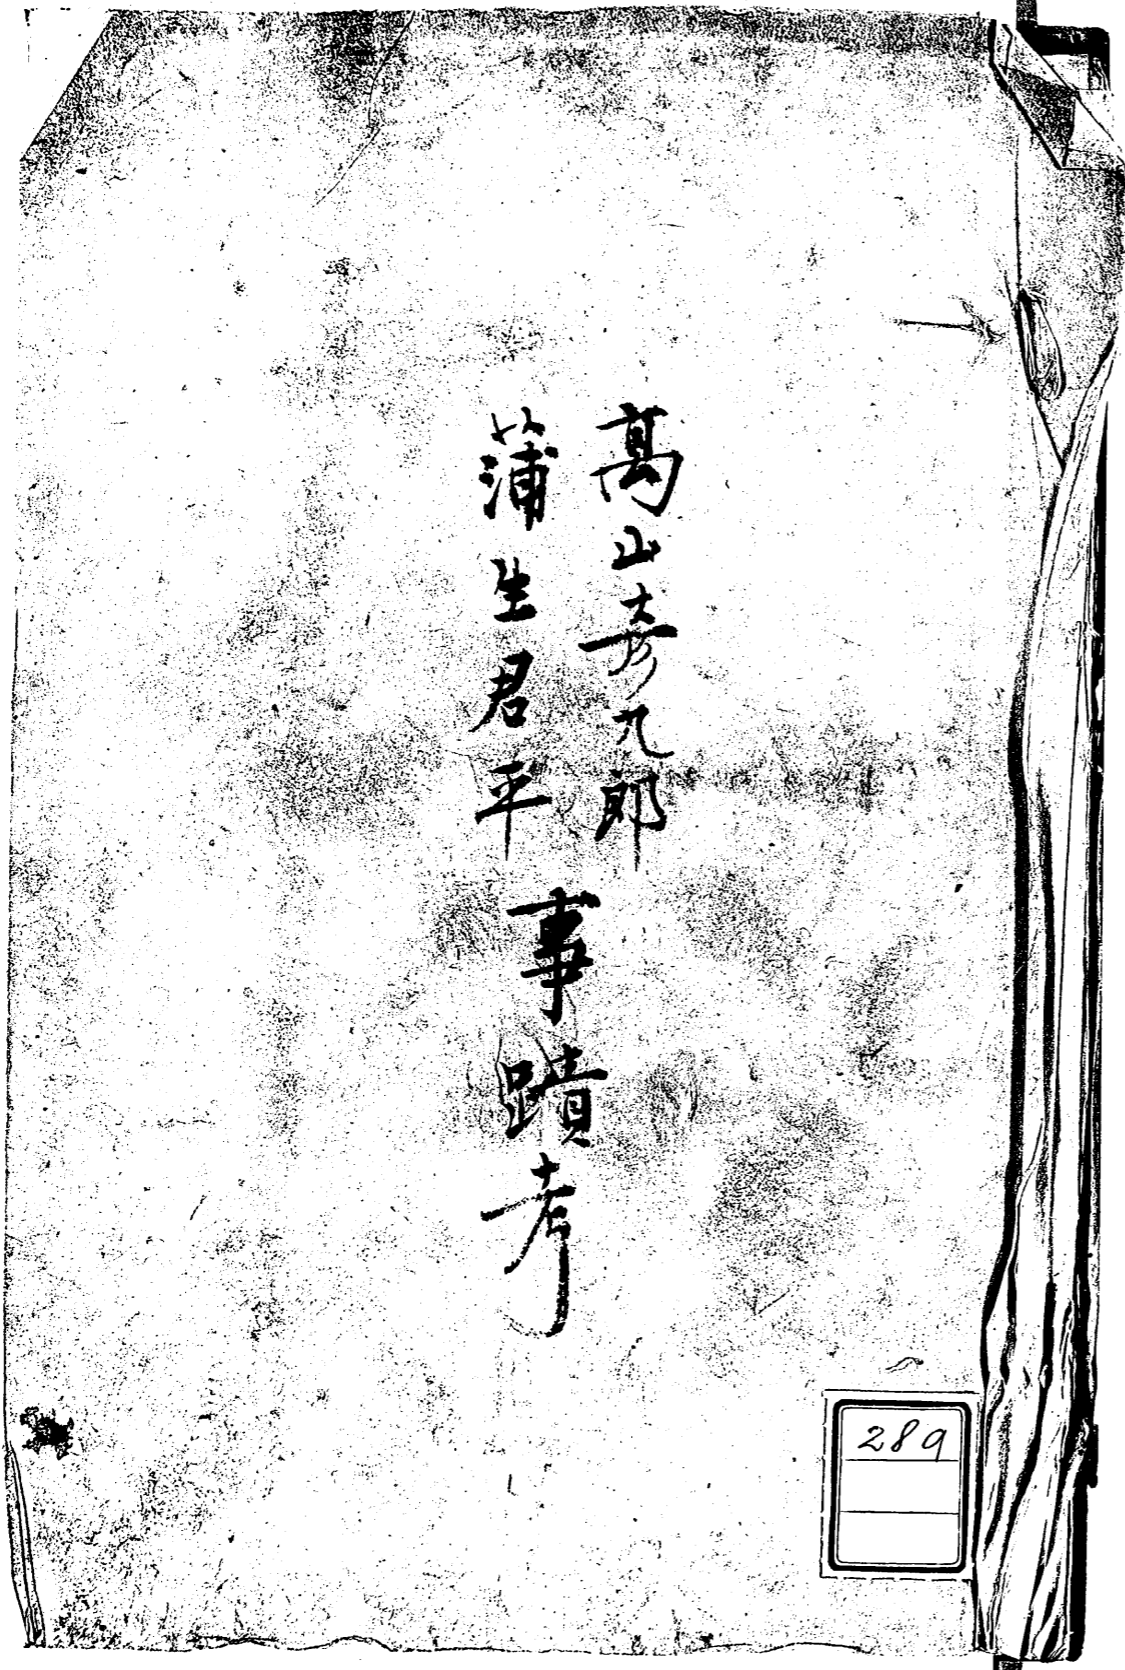 高山彦九郎
蒲生君平
事蹟考
289